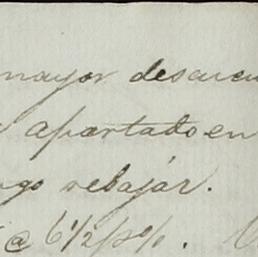 mayor descuen
apartado en
ngo rebajár.
@ 6 1/2 p%.